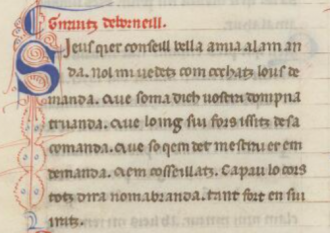 Girautz deborneill.
Sieus quer conseill bella amia alam an
da. nol mi uedetz com cochatz lous de
manda. Que so ma dich uostra dompna
truanda. Que loing sui fors issitz de sa
comanda. Que so qem det mestrai er em
demanda. Qem cosseillatz. Ca pau lo cors
totz dira nom abranda. tant fort en sui
iratz.